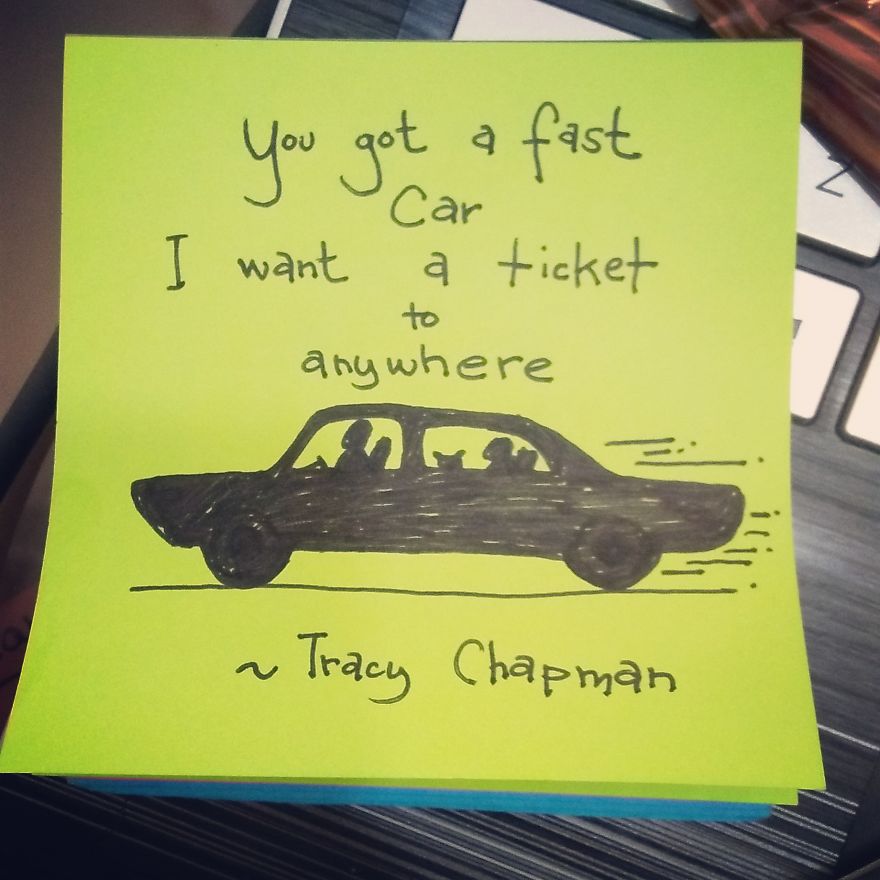 You got a fast
Car
I want a ticket
to
anywhere
~ Tracy Chapman